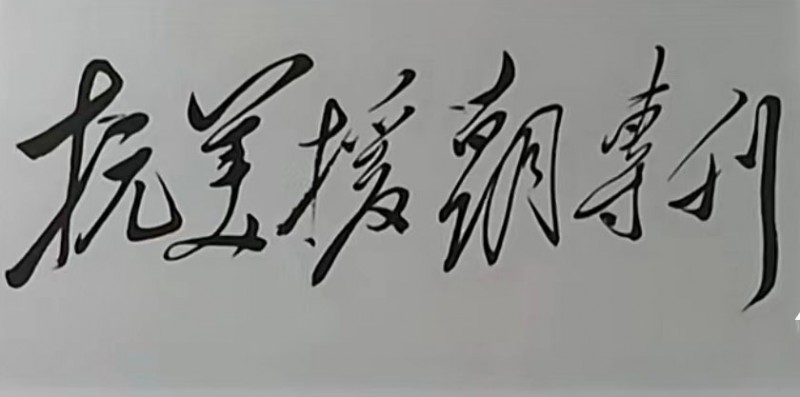 抗美援朝專刊